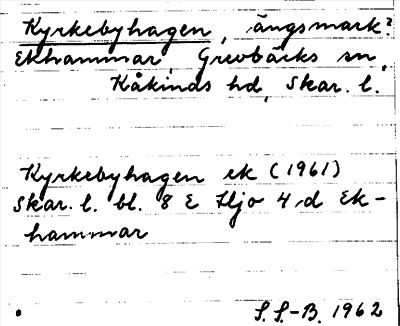 Kyrkebyhagen, ängsmark?
Ekhammar, Grevbäcks sn,
Kåkinds hd, Skar. l.
Kyrkebyhagen ek (1961)
Skar. l. bl. 8 E Hjo 4 d Ek-
hammar
S. S.-B. 1962